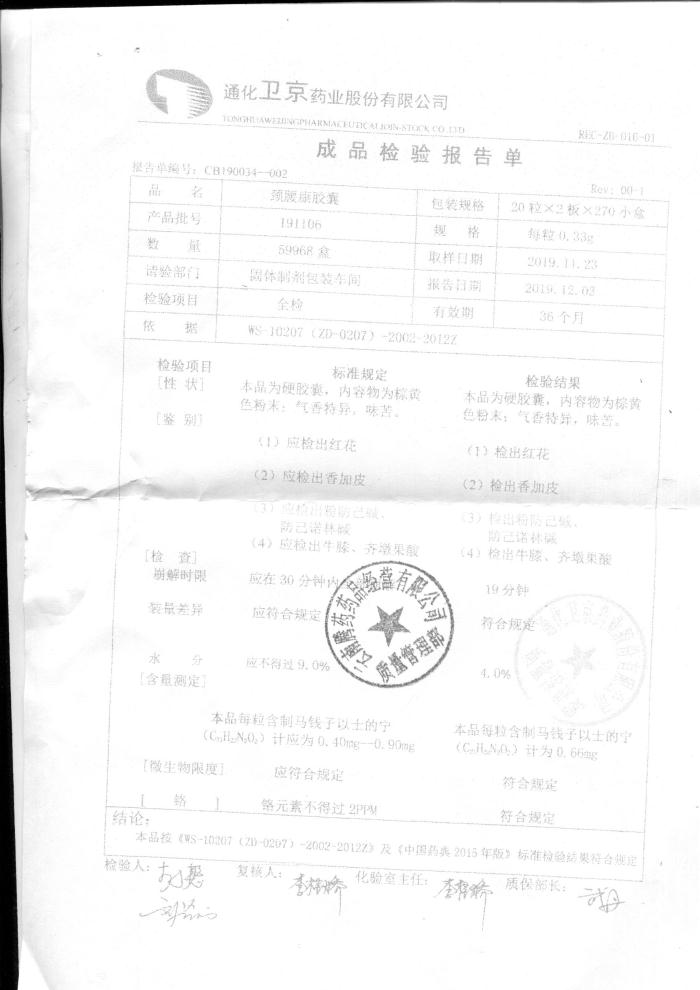 通化卫京药业股份有限公司
TONGHUAWEIJINGPHARMACEUTICALJOIN-STOCK CO.,LTD
REC-ZB-016-01
成品检验报告单
报告单编号：CB190034--002
Rev: 00-1
品 名 颈腰康胶囊 包装规格 20粒×2板×270小盒
产品批号 191106 规 格 每粒0.33g
数 量 59968盒 取样日期 2019.11.23
请验部门 固体制剂包装车间 报告日期 2019.12.03
检验项目 全检 有效期 36个月
依 据 WS-10207（ZD-0207）-2002-2012Z
检验项目 标准规定 检验结果
［性 状］ 本品为硬胶囊，内容物为棕黄 本品为硬胶囊，内容物为棕黄
色粉末；气香特异，味苦。 色粉末；气香特异，味苦。
［鉴 别］
（1）应检出红花 （1）检出红花
（2）应检出香加皮 （2）检出香加皮
（3）应检出粉防己碱、 （3）检出粉防己碱、
防己诺林碱 防己诺林碱
（4）应检出牛膝、齐墩果酸 （4）检出牛膝、齐墩果酸
［检 查］
崩解时限 应在30分钟内 19分钟
装量差异 应符合规定 符合规定
水 分 应不得过9.0% 4.0%
［含量测定］
本品每粒含制马钱子以士的宁 本品每粒含制马钱子以士的宁
（C₂₁H₂₂N₂O₂）计应为0.40mg--0.90mg （C₂₁H₂₂N₂O₂）计为0.66mg
［微生物限度］ 应符合规定 符合规定
［ 铬 ］ 铬元素不得过2PPM 符合规定
结论：
本品按《WS-10207（ZD-0207）-2002-2012Z》及《中国药典2015年版》标准检验结果符合规定
检验人： 复核人： 化验室主任： 质保部长：
云南腾药药品经营有限公司
质量管理部